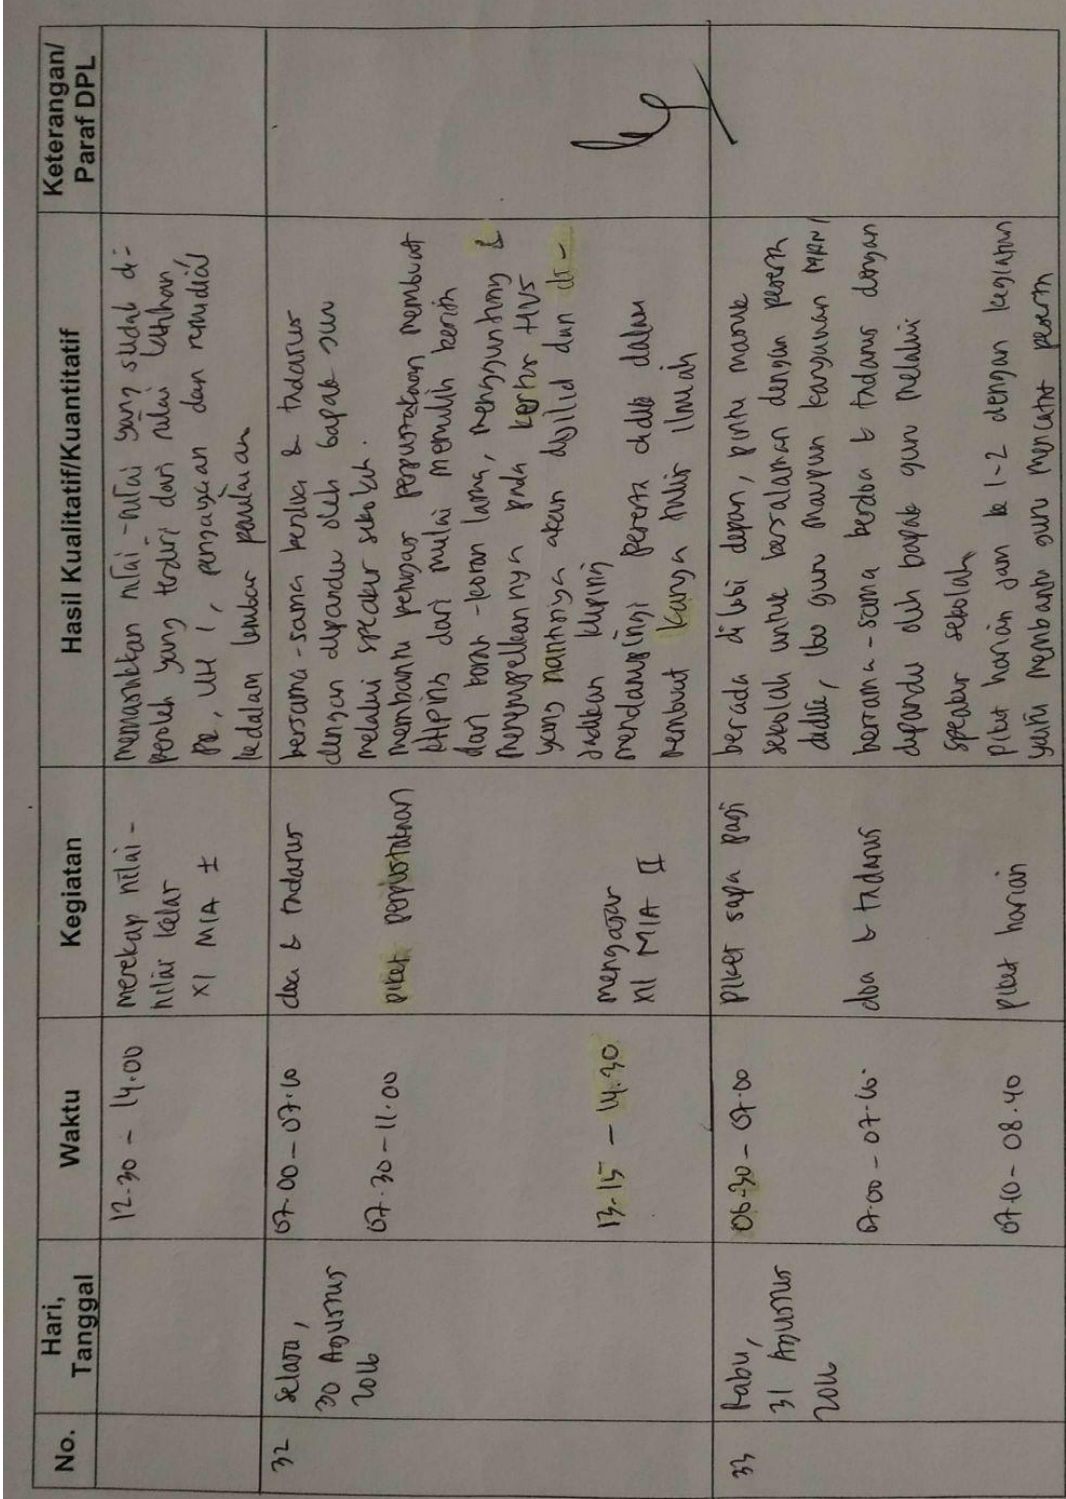 No.
Hari,
Tanggal
Waktu
Kegiatan
Hasil Kualitatif/Kuantitatif
Keterangan/
Paraf DPL
12.30 - 14.00
merekap nilai -
nilai kelas
XI MIA I
memasukkan nilai-nilai yang sudah di-
peroleh yang terdiri dari nilai latihan
PR, UH 1, pengayaan dan remidial
kedalam lembar penilaian
32
Selasa,
30 Agustus
2016
07.00 - 07.10
doa & tadarus
bersama-sama berdoa & tadarus
dengan dipandu oleh bapak guru
melalui speaker sekolah.
07.30 - 11.00
piket perpustakaan
membantu petugas perpustakaan membuat
kliping dari mulai memilih
dari koran-koran lama, menggunting &
menempelkannya pada kertas HVS
yang nantinya akan dijilid dan di-
jadikan kliping
13.15 - 14.30
mengajar
XII MIA II
mendampingi peserta didik dalam
membuat karya tulis ilmiah
33
Rabu,
31 Agustus
2016
06.30 - 07.00
piket sapa pagi
berada di lobi depan, pintu masuk
sekolah untuk bersalaman dengan peserta
didik, ibu guru maupun karyawan MAN 1
07.00 - 07.10
doa & tadarus
bersama-sama berdoa & tadarus dengan
dipandu oleh bapak guru melalui
speaker sekolah
07.10 - 08.40
piket harian
piket harian jam ke 1-2 dengan kegiatan
yaitu membantu guru mencatat peserta